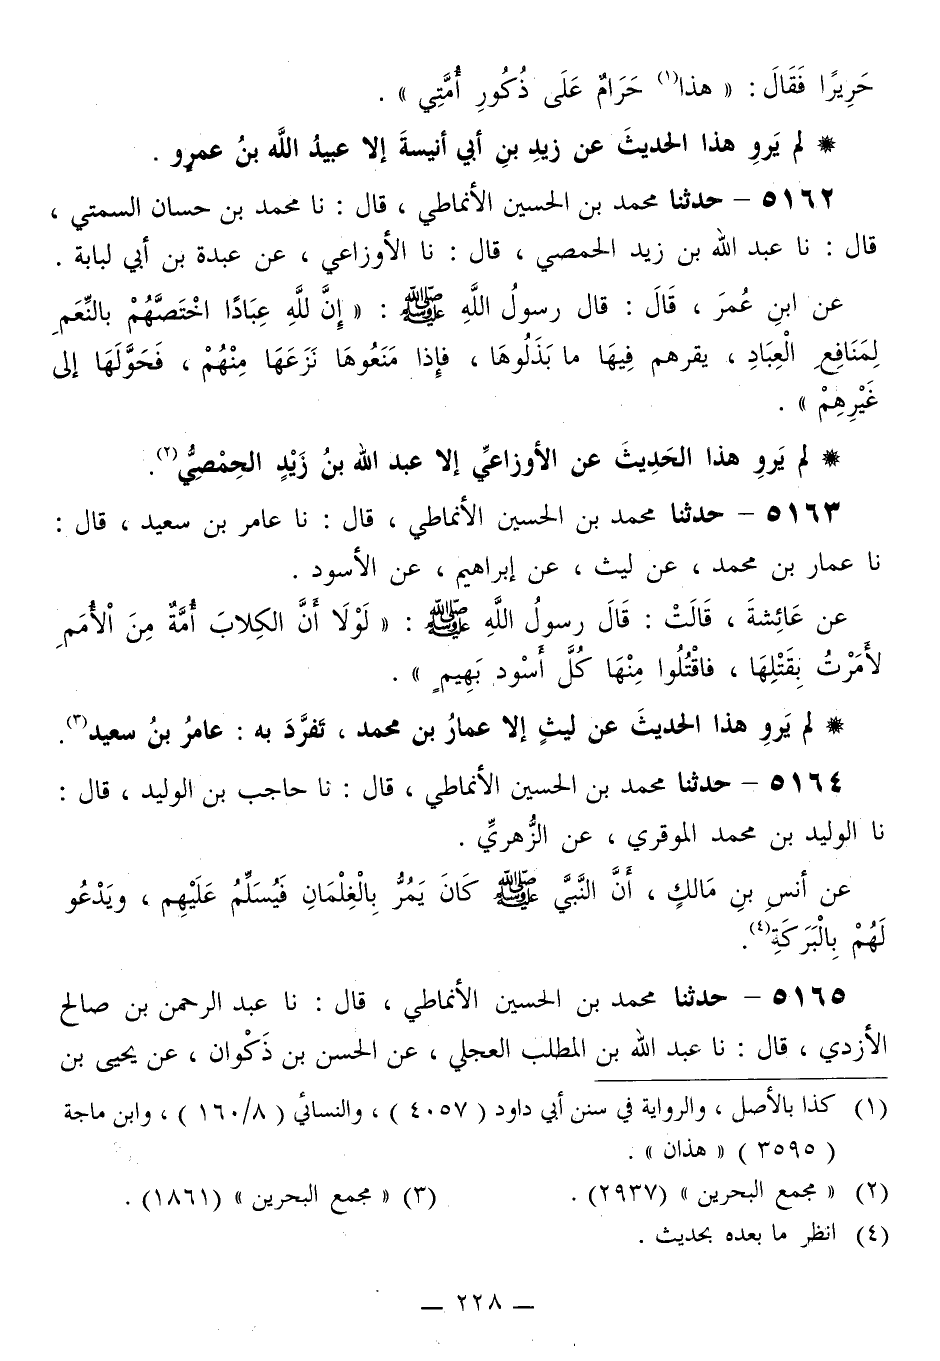 حَرِيرًا فَقَالَ : « هذا(١) حَرَامٌ عَلَى ذُكُورِ أُمَّتِي » .
* لم يَروِ هذا الحديثَ عن زيدِ بنِ أبي أنيسةَ إلا عبيدُ اللَّه بنُ عمرٍو .
٥١٦٢ – حدثنا محمد بن الحسين الأنماطي ، قال : نا محمد بن حسان السمتي ،
قال : نا عبد الله بن زيد الحمصي ، قال : نا الأوزاعي ، عن عبدة بن أبي لبابة .
عن ابنِ عُمرَ ، قَالَ : قال رسولُ اللَّهِ ﷺ : « إِنَّ للَّهِ عِبَادًا اخْتَصَّهُمْ بالنِّعَمِ
لِمَنَافِعِ الْعِبَادِ ، يقرهم فِيهَا ما بَذَلُوهَا ، فإِذا مَنَعُوهَا نَزَعَهَا مِنْهُمْ ، فَحَوَّلَهَا إلى
غَيْرِهِمْ » .
* لم يَروِ هذا الحَدِيثَ عن الأوزاعيِّ إلا عبد الله بنُ زَيْدٍ الحِمْصِيُّ(٢).
٥١٦٣ – حدثنا محمد بن الحسين الأنماطي ، قال : نا عامر بن سعيد ، قال :
نا عمار بن محمد ، عن ليث ، عن إبراهيم ، عن الأسود .
عن عَائِشةَ ، قَالَتْ : قَالَ رسولُ اللَّهِ ﷺ : « لَوْلَا أَنَّ الكِلابَ أُمَّةٌ مِنَ الْأُمَمِ
لأَمَرْتُ بِقَتْلِهَا ، فاقْتُلُوا مِنْهَا كُلَّ أَسْود بَهِيمٍ » .
* لم يَروِ هذا الحديثَ عن ليثٍ إلا عمارُ بن محمد ، تَفرَّدَ به : عامرُ بنُ سعيد(٣).
٥١٦٤ – حدثنا محمد بن الحسين الأنماطي ، قال : نا حاجب بن الوليد ، قال :
نا الوليد بن محمد الموقري ، عن الزُّهريِّ .
عن أنسِ بنِ مَالكٍ ، أَنَّ النَّبيَّ ﷺ كَانَ يَمُرُّ بِالْغِلْمَانِ فَيُسَلِّمُ عَلَيْهِم ، ويَدْعُو
لَهُمْ بِالْبَرَكَةِ(٤).
٥١٦٥ – حدثنا محمد بن الحسين الأنماطي ، قال : نا عبد الرحمن بن صالح
الأزدي ، قال : نا عبد الله بن المطلب العجلي ، عن الحسن بن ذَكْوان ، عن يحيى بن
(١) كذا بالأصل ، والرواية في سنن أبي داود ( ٤٠٥٧ ) ، والنسائي ( ١٦٠/٨ ) ، وابن ماجة
( ٣٥٩٥ ) « هذان » .
(٢) « مجمع البحرين » (٢٩٣٧) . (٣) « مجمع البحرين » (١٨٦١) .
(٤) انظر ما بعده بحديث .
— ٢٢٨ —